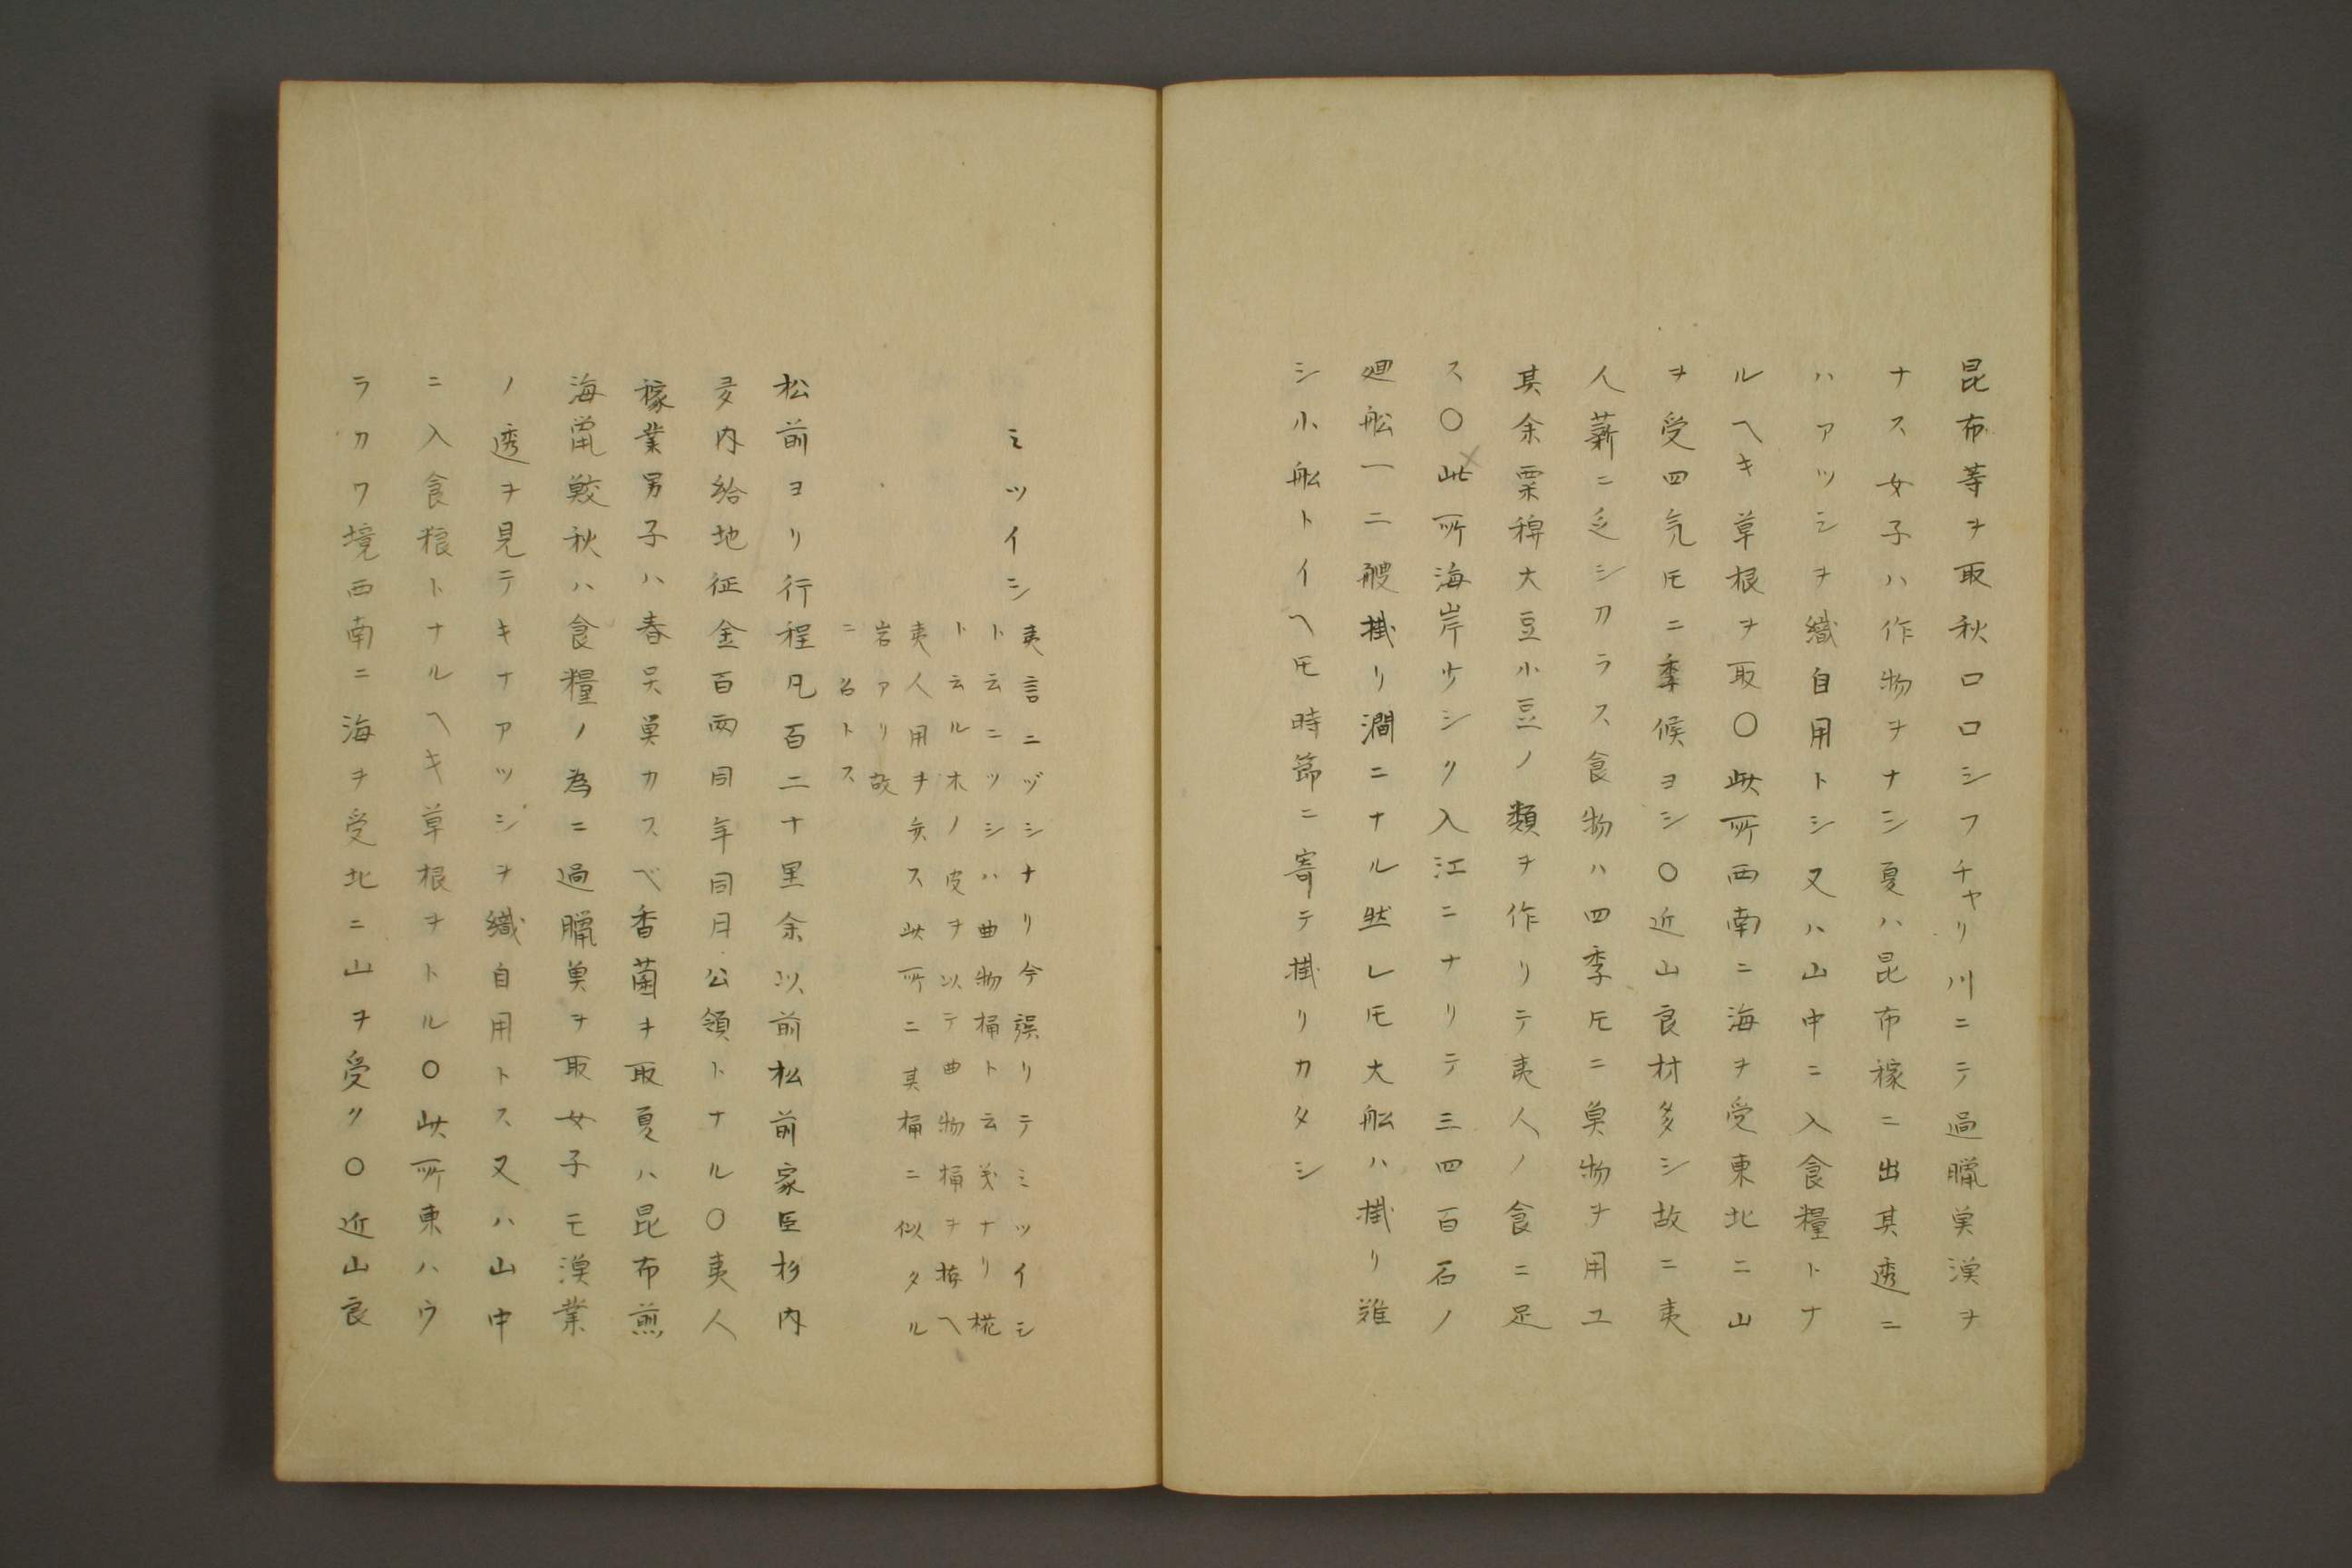 昆布等ヲ取秋ロロシフチャリ川ニテ過臘魚漁ヲ
ナス女子ハ作物ヲナシ夏ハ昆布稼ニ出其透ニ
ハアツシヲ織自用トシ又ハ山中ニ入食糧トナ
ルヘキ草根ヲ取〇此所西南ニ海ヲ受東北ニ山
ヲ受四気𪜈ニ季候ヨシ〇近山良材多シ故ニ夷
人薪ニ乏シカラス食物ハ四季𪜈ニ魚物ヲ用ユ
其余粟稗大豆小豆ノ類ヲ作リテ夷人ノ食ニ足
ス〇此所海岸少シク入江ニナリテ三四百石ノ
廻舩一二艘掛リ澗ニナル然レ𪜈大舩ハ掛リ難
シ小舩トイヘ𪜈時節ニ寄テ掛リカタシ
ミツイシ
夷言ニヅシナリ今誤リテミツイシ
ト云ニツシハ曲物桶ト云義ナリ椛
ト云ルホノ皮ヲ以テ曲物桶ヲ拵ヘ
夷人用ヲ弁ス此所ニ其桶ニ似タル
岩アリ故
ニ名トス
松前ヨリ行程凡百二十里余以前松前家臣杉内
多内給地征金百両同年同月公領トナル〇夷人
稼業男子ハ春呉魚カスベ香菌ヲ取夏ハ昆布煎
海鼠鮫秋ハ食糧ノ為ニ過臘魚ヲ取女子モ漁業
ノ透ヲ見テキナアツシヲ織自用トス又ハ山中
ニ入食粮トナルヘキ草根ヲトル〇此所東ハウ
ラカワ境西南ニ海ヲ受北ニ山ヲ受ク〇近山良